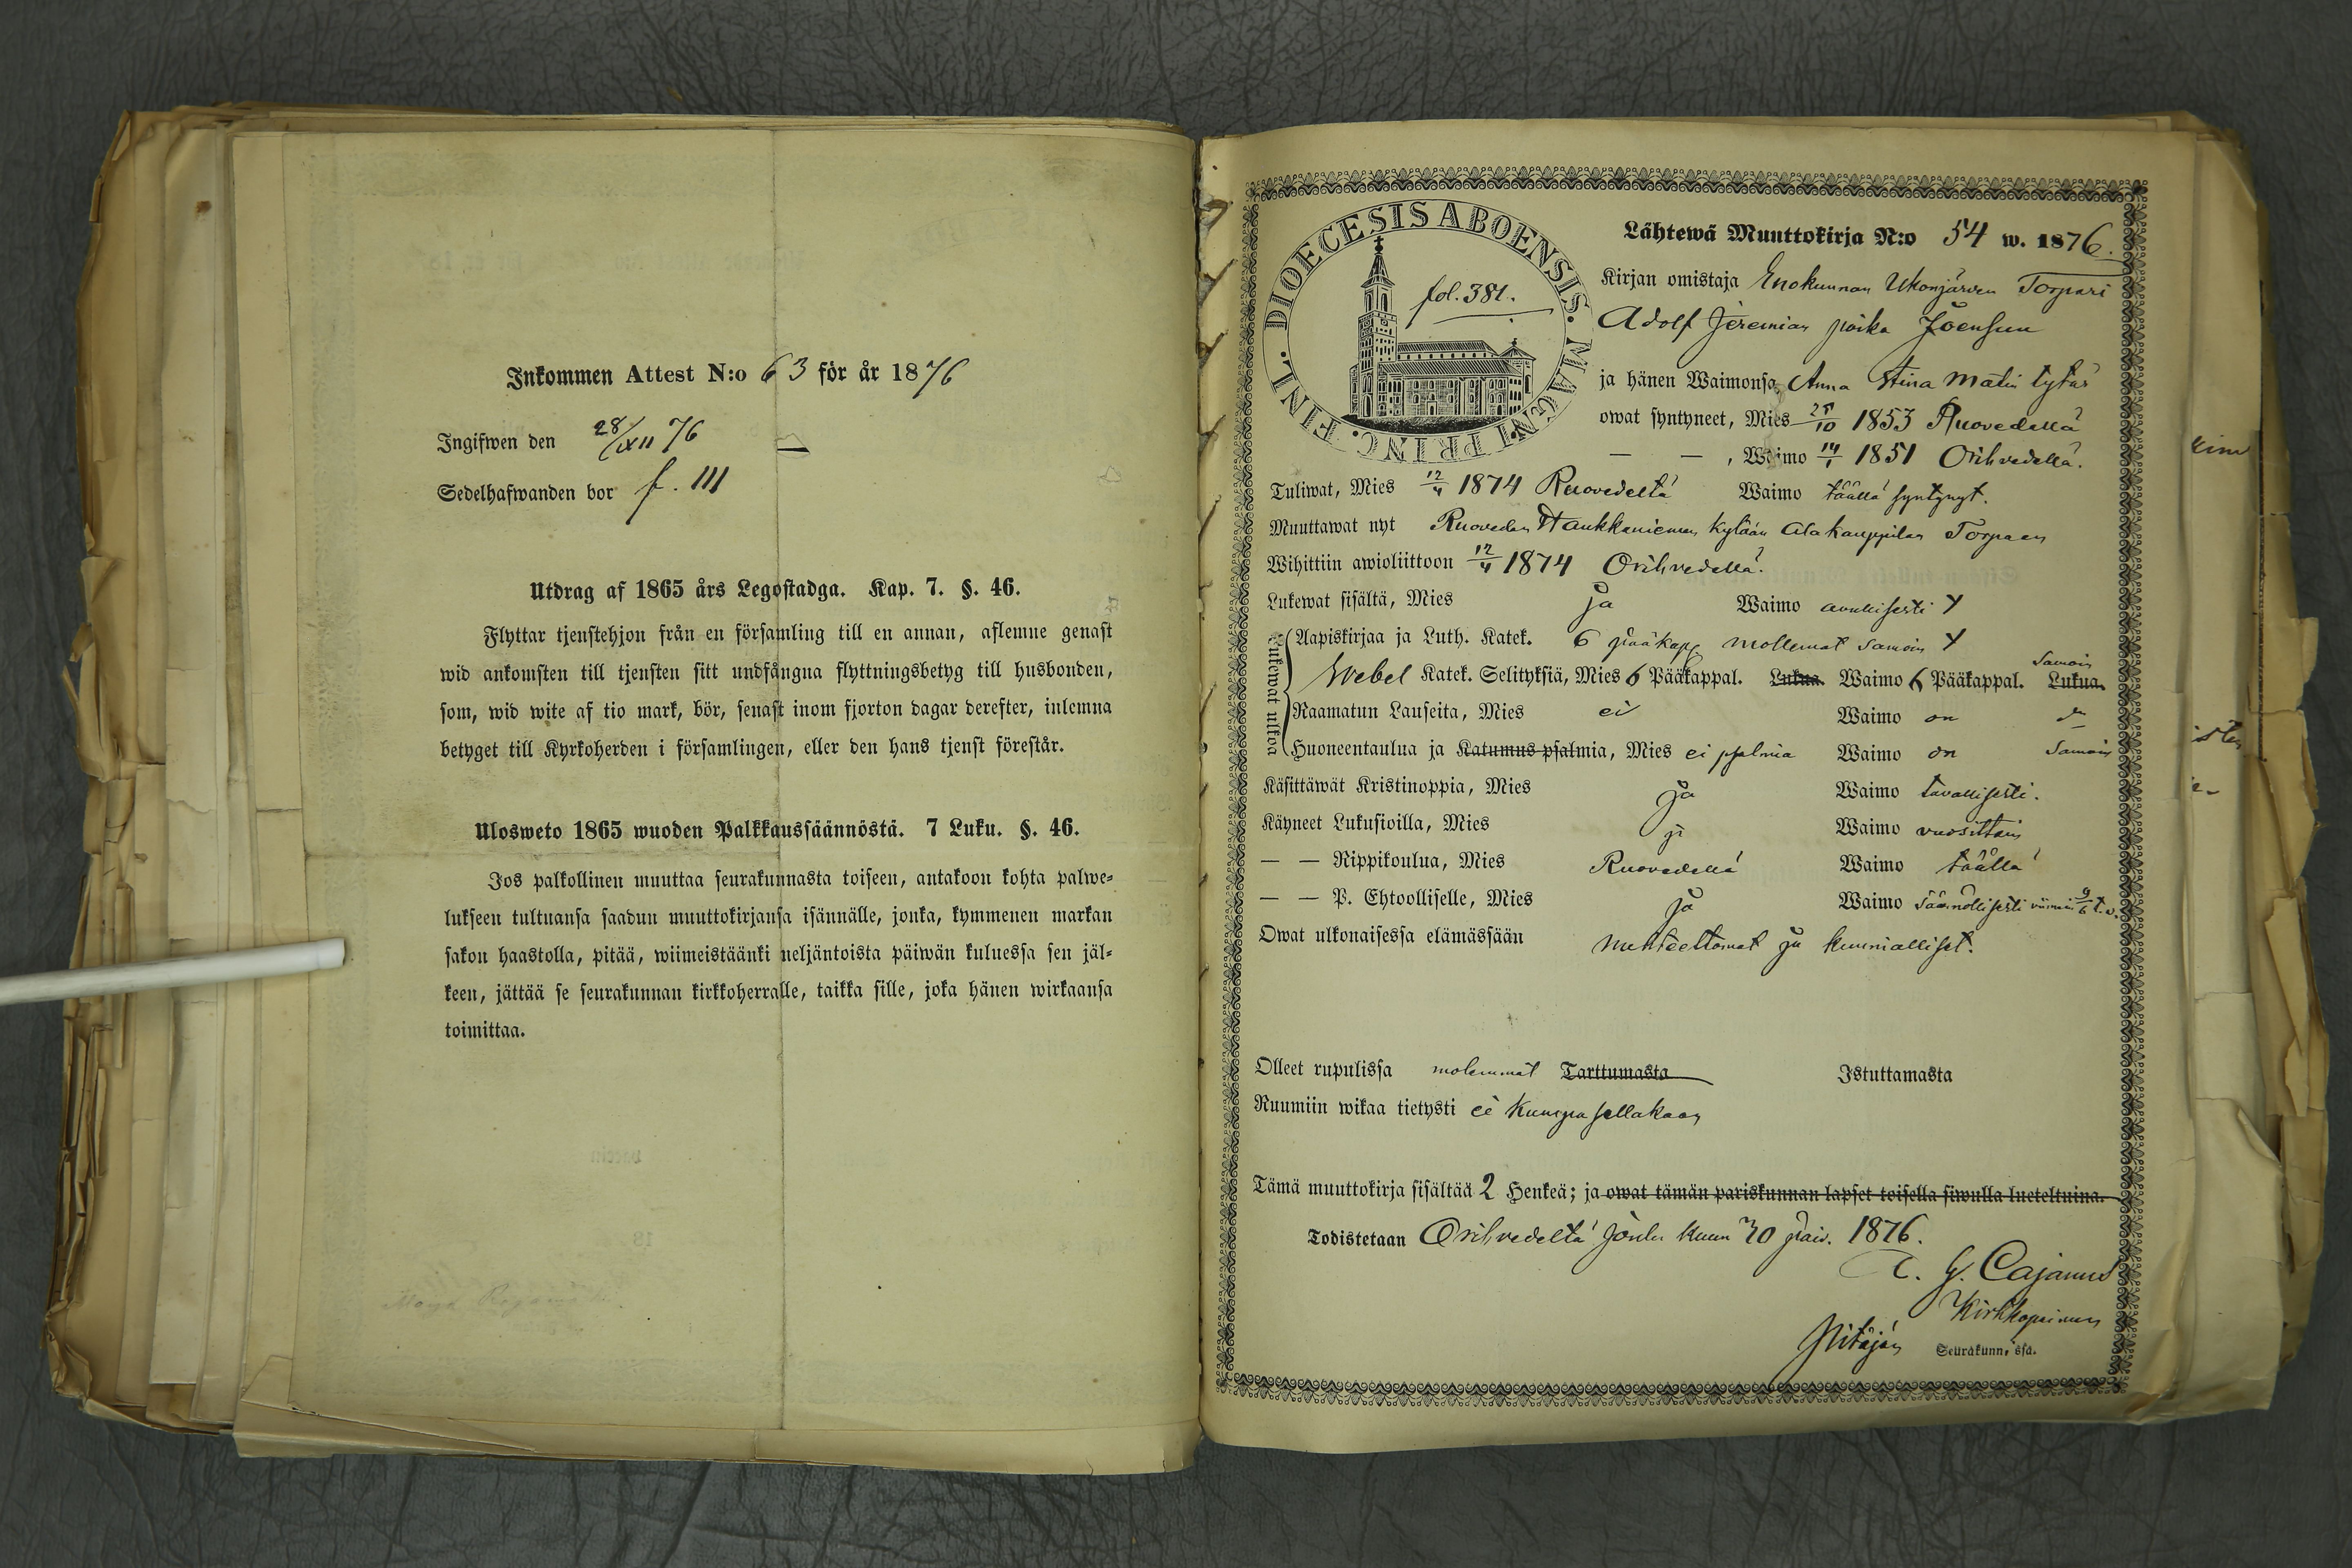 Inkommen Attest N:o 63 för år 1876
Ingifwen den 28/XII 76
Sedelhafwanden bor f. 111
Utdrag af 1865 års Legostadga. Kap. 7. §. 46.
Flyttar tjenstehjon från en församling till en annan, aflemne genast
wid ankomsten till tjensten sitt undfångna flyttningsbetyg till husbonden,
som, wid wite af tio mark, bör, senast inom fjorton dagar derefter, inlemna
betyget till Kyrkoherden i församlingen, eller den hans tjenst förestår.
Ulosweto 1865 wuoden Palkkaussäännöstä. 7 Luku. §. 46.
Jos palkollinen muuttaa seurakunnasta toiseen, antakoon kohta palwe-
lukseen tultuansa saadun muuttokirjansa isännälle, jonka, kymmenen markan
sakon haastolla, pitää, wiimeistäänki neljäntoista päiwän kuluessa sen jäl-
keen, jättää se seurakunnan kirkkoherralle, taikka sille, joka hänen wirkaansa
toimittaa.
DIOECESIS ABOENSIS. MAGNI PRINC. FINL.
fol. 381.
Lähtewä Muuttokirja N:o 54 w. 1876.
Kirjan omistaja Enokunnan Ukonjärven Torpari
Adolf Jeremian poika Joensuu
ja hänen Waimonsa Anna Stina Matin tytär
owat syntyneet, Mies 25/10 1853 Ruovedellä
— — , Waimo 14/1 1851 Orihvedellä.
Tuliwat, Mies 12/4 1874 Ruovedeltä Waimo täällä syntynyt.
Muuttawat nyt Ruoveden Haukkaniemen kylään Alakauppilan Torpaan
Wihittiin awioliittoon 12/4 1874 Orihvedellä.
Lukewat sisältä, Mies ja Waimo
Lukewat ulkoa
Aapiskirjaa ja Luth. Katek. 6 pääkapp. mollemat samoin
Webel Katek. Selityksiä, Mies 6 Pääkappal. Lukua. Waimo 6 Pääkappal. Lukua. Samoin
Raamatun Lauseita, Mies ei Waimo on
Huoneentaulua ja Katumus-psalmia, Mies ei psalmia Waimo on Samoin
Käsittäwät Kristinoppia, Mies ja Waimo tavallisesti.
Käyneet Lukusioilla, Mies ja Waimo vuosittain
— — Rippikoulua, Mies Ruovedellä Waimo täällä
— — P. Ehtoolliselle, Mies ja Waimo säännöllisesti viimein 9/6 t.v.
Owat ulkonaisessa elämässään nuhteettomat ja kunnialliset.
Olleet rupulissa molemmat Tarttumasta Istuttamasta
Ruumiin wikaa tietysti ei kumpasellakaan
Tämä muuttokirja sisältää 2 Henkeä; ja owat tämän pariskunnan lapset toisella siwulla lueteltuina.
Todistetaan Orihvedeltä Joulu kuun 20 päiv. 1876.
G. Cajanus
Kirkkoherran
Pitäjän Seurakunn,ssa.